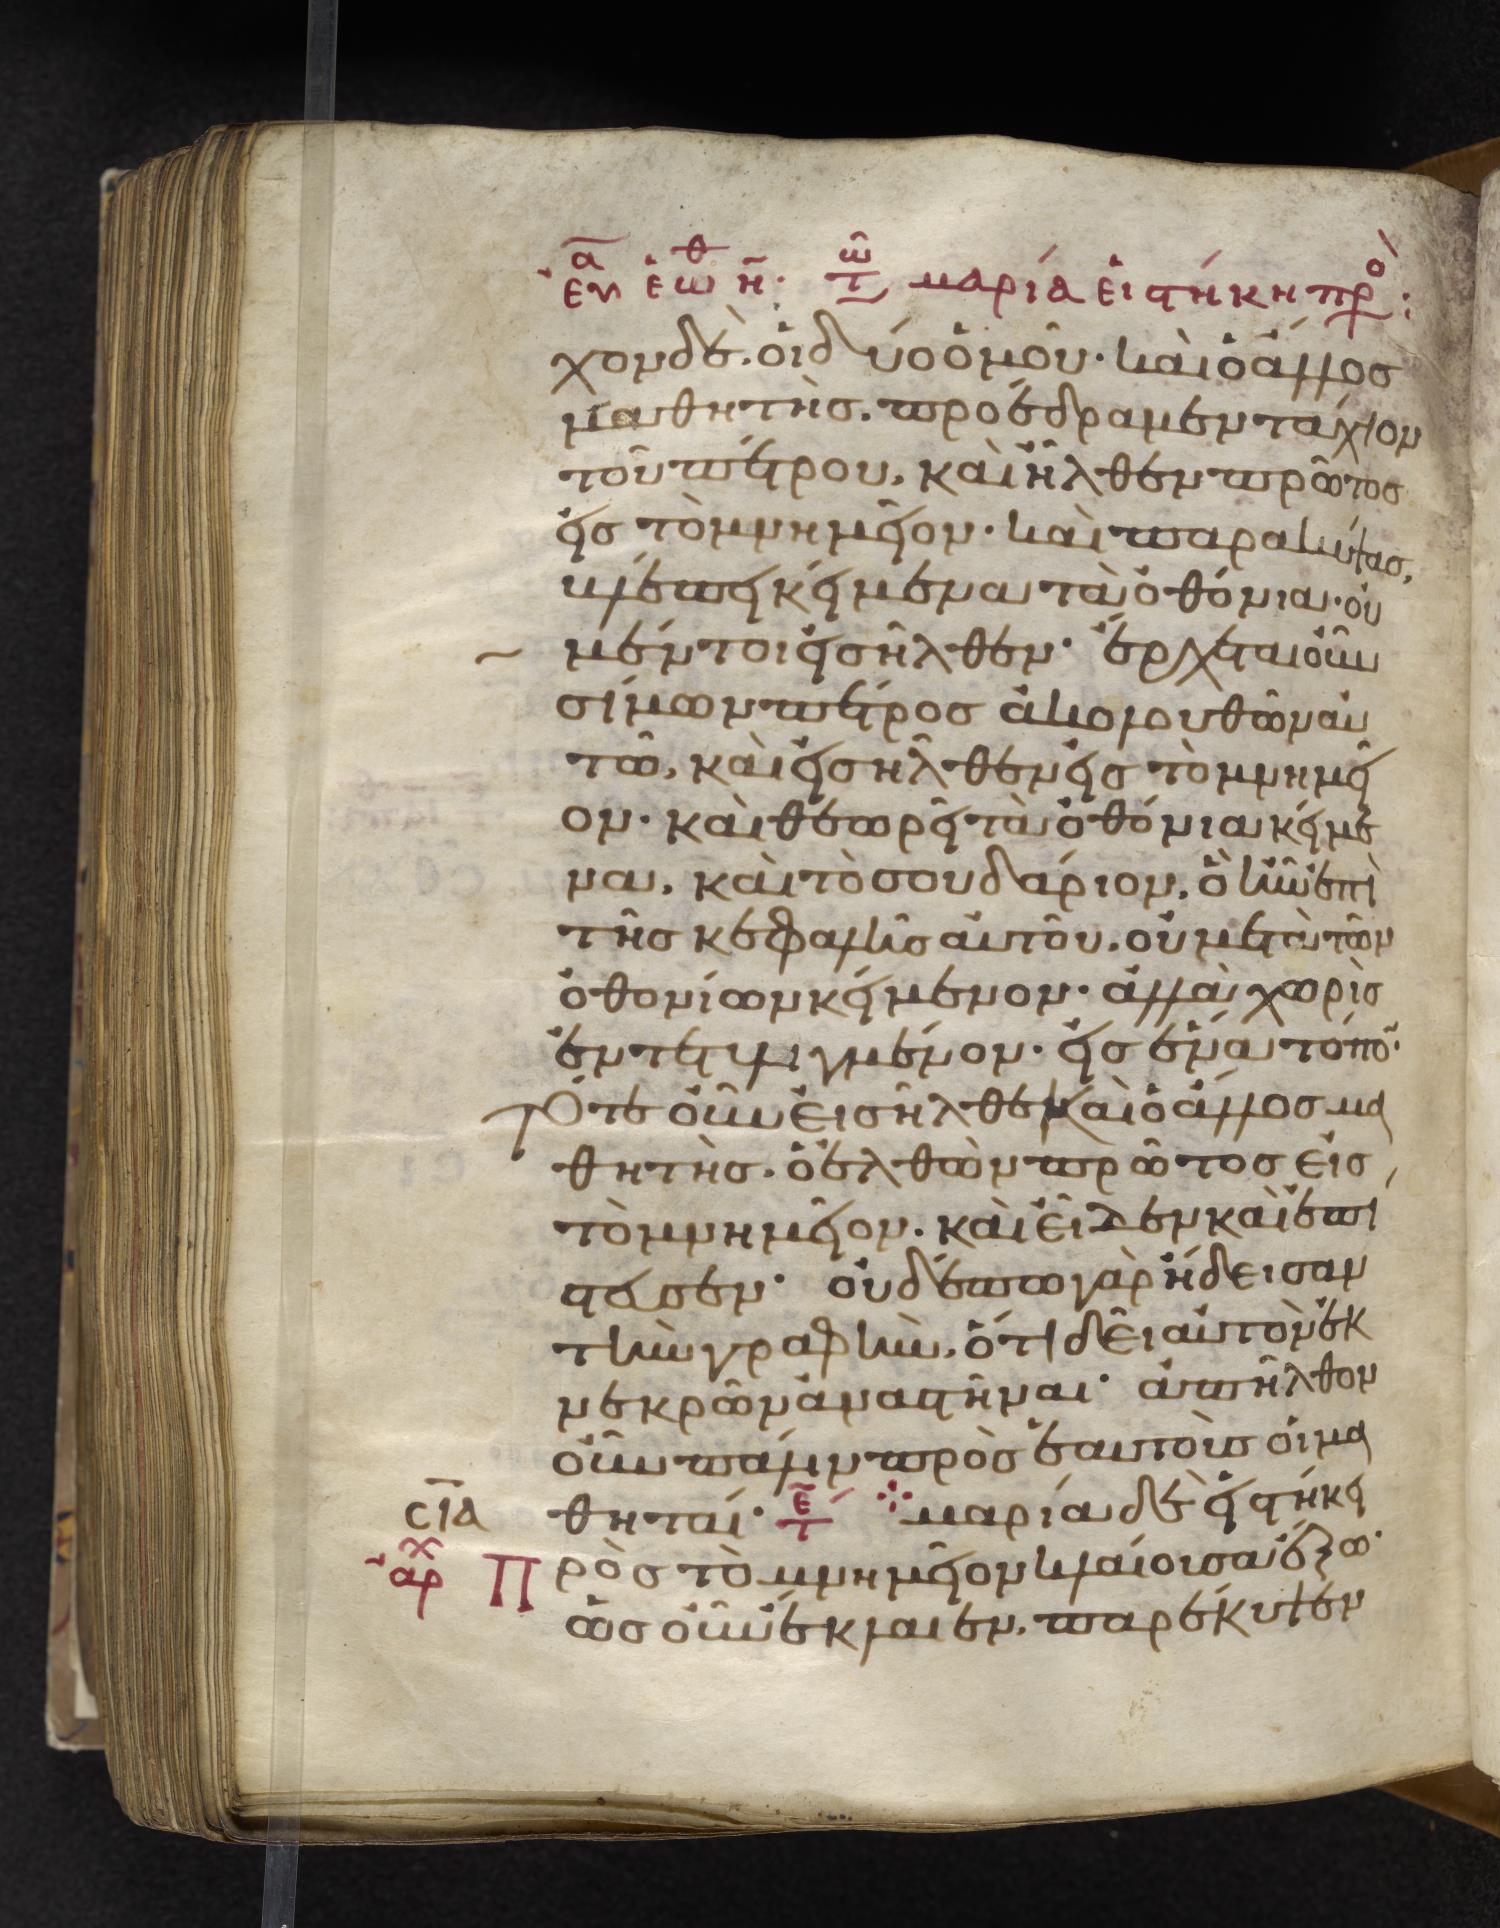 εὐα ἑωθ η̄· τῶ μαρία εἱστήκη πρὸ:
χον δὲ. οἱ δύο ὁμοῦ· καὶ ὁ ἄλλος
μαθητὴς. προέδραμεν τάχιον
τοῦ πέτρου, καὶ ἦλθεν πρῶτος
εἰς τὸ μνημεῖον· καὶ παρακύψας,
βλέπει κείμενα τὰ ὀθόνια· οὐ
μέντοι εἰσῆλθεν· ἔρχεται οὖν
σίμων πέτρος ἀκολουθῶν αὐ
τῶ, καὶ εἰσῆλθεν εἰς τὸ μνημεῖ
ον· καὶ θεωρεῖ τὰ ὀθόνια κείμε
να, καὶ τὸ σουδάριον, ὃ ἦν ἐπὶ
τῆς κεφαλῆς αὐτοῦ, οὐ μετὰ τῶν
ὀθονίων κείμενον· ἀλλὰ χωρὶς
ἐντετυλιγμένον· εἰς ἕνα τόπο̄·
Τότε οὖν εἰσῆλθεν καὶ ὁ ἄλλος μα
θητὴς. ὁ ἐλθὼν πρῶτος εἰς
τὸ μνημεῖον. καὶ εἶδεν καὶ ἐπί
στευσεν· οὐδέπω γὰρ ἤδεισαν
τὴν γραφὴν, ὅτι δεῖ αὐτὸν ἐκ
νεκρῶν ἀναστῆναι· ἀπῆλθον
οὖν πάλιν πρὸς ἑαυτοὺς οἱ μα
σῑα θηταί· τε̄ μαρία δὲ εἱστήκει
ἀρχ Πρὸς τὸ μνημεῖον κλαίουσα ἔξω·
ὡς οὖν ἔκλαιεν, παρέκυψεν